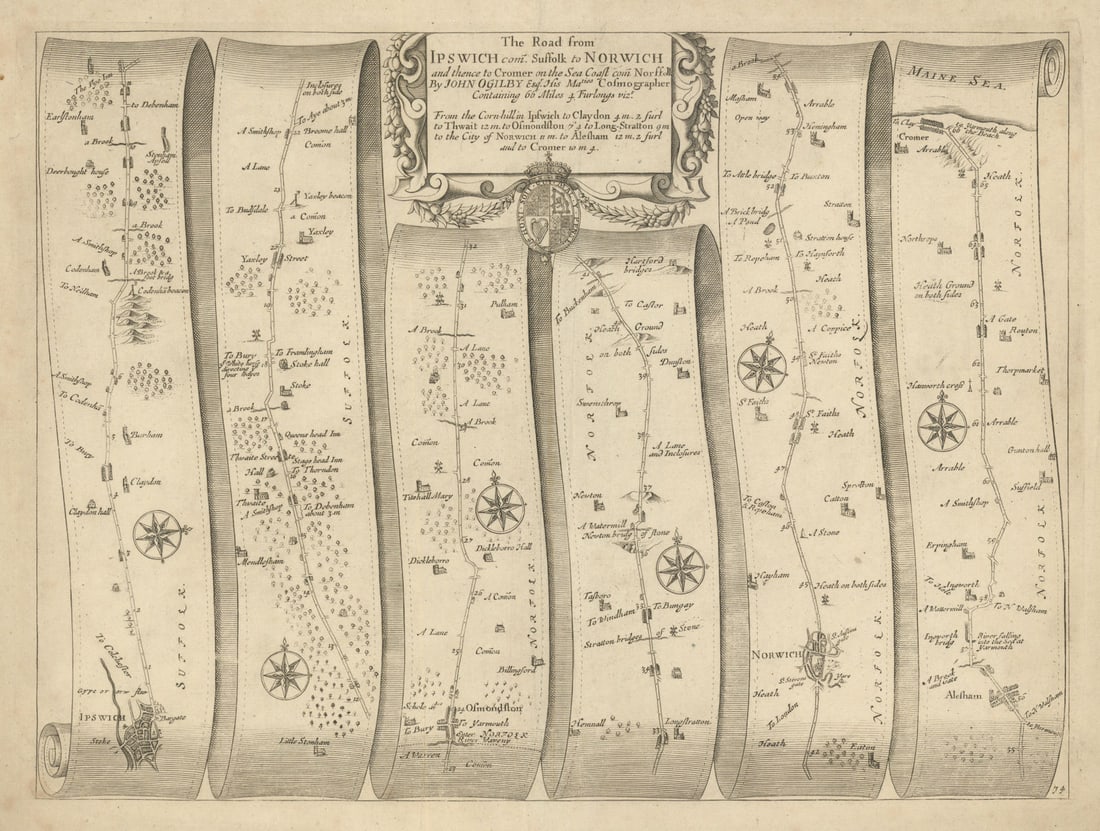 The Road from
IPSWICH com. Suffolk to NORWICH
and thence to Cromer on the Sea Coast com Norffolk
By JOHN OGILBY Esq. His Maties Cosmographer
Containing 66 Miles 4 Furlongs viz.
From the Corn-hill in Ipswich to Claydon 4 m. 2 furl
to Thwait 12 m. to Osmondston 7'2 to Long-Stratton 9 m
to the City of NORWICH 11 m. to Alesham 12 m. 2 furl
and to Cromer 10 m 4.
to Debenham
Earlstonham
a Brook
Stonham
Deerbought house
a Brook
A Smithshop
Codenham
A Brook &
Codenham beacon
To Neilham
A Smithshop
To Codenham
To Bury
Burham
Claydon
Claydon hall
SUFFOLK
To Colchester
IPSWICH
Stoke
Inclosures
on both side
To Aye about 3 m
A Smithshop
Broome hall
Comon
A Lane
Yaxley beacon
a Comon
To Budsdale
Yaxley
Yaxley Street
To Bury
To Framlingham
Stoke hall
directing
four wayes
Stoke
a Brook
SUFFOLK
Queens head Inn
Thwaite Street
Stags head Inn
Hall
To Thorndon
Thwaite
A Smithshop
To Debenham
about 3 m
Mendlesham
Little Stonham
32
Pulham
31
A Brook
A Lane
A Lane
A Brook
Comon
Comon
28
Titshall Mary
27
Dickleboro Hall
Dickleboro
26
A Comon
A Lane
25
Comon
NORFOLK
Billingford
Osmondston
To Bury
To Yarmouth
Enter NORFOLK
River Waveny
A Warren
Comon
Hartford
bridges
To Buckenham
To Castor
Heath Ground
on both sides
Dunston
NORFOLK
Swensthrop
A Lane
and Inclosures
37
Newton
A Watermill
Newton bridg of stone
Tasboro
To Windham
To Bungay
Stratton bridges of Stone
Hemnall
Longstratton
33
a Brook
Masham
Arrable
Open way
53
Hemingham
To Attle bridge
To Buxton
52
A Brick bridg
A Pond
Stratton
51
Stratton house
To Repeham
To Haynforth
Heath
A Brook
50
A Coppice
Heath
St. Faiths
Newton
NORFOLK
St. Faiths
48
St. Faiths
Heath
47
Sprofton
Catton
To Caston
& Repeham
46
A Stone
Hayham
45
Heath on both sides
NORWICH
Yare
NORFOLK
Heath
To London
Heath
42
Eaton
MAINE SEA.
To Clay
to Yarmouth along
on the Beach
Cromer
Arrable
Heath
65
NORFOLK
Northrops
Heath Ground
on both sides
63
A Gate
Routon
Thorpmarket
Hanworth cross
61
Arrable
Gunton hall
Arrable
60
Suffield
A Smithshop
59
Erpingham
NORFOLK
To Ingworth
58
A Watermill
To N. Walsham
Ingworth
bridg
River falling
into the Sea at
Yarmouth
A Brook
and Gate
Alesham
To N. Walsham
55
74